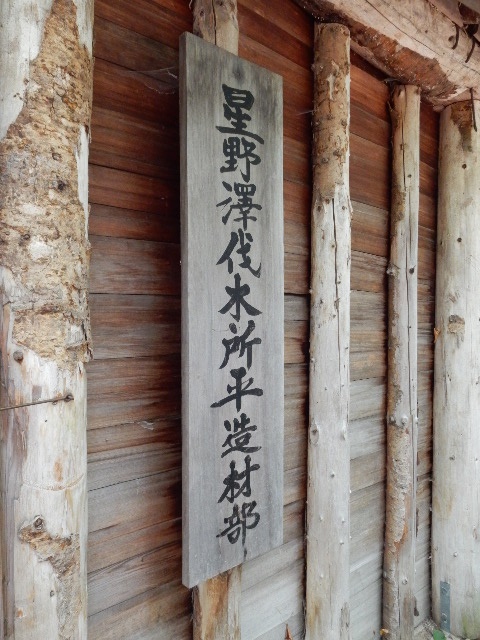 星野澤伐木所平造材部